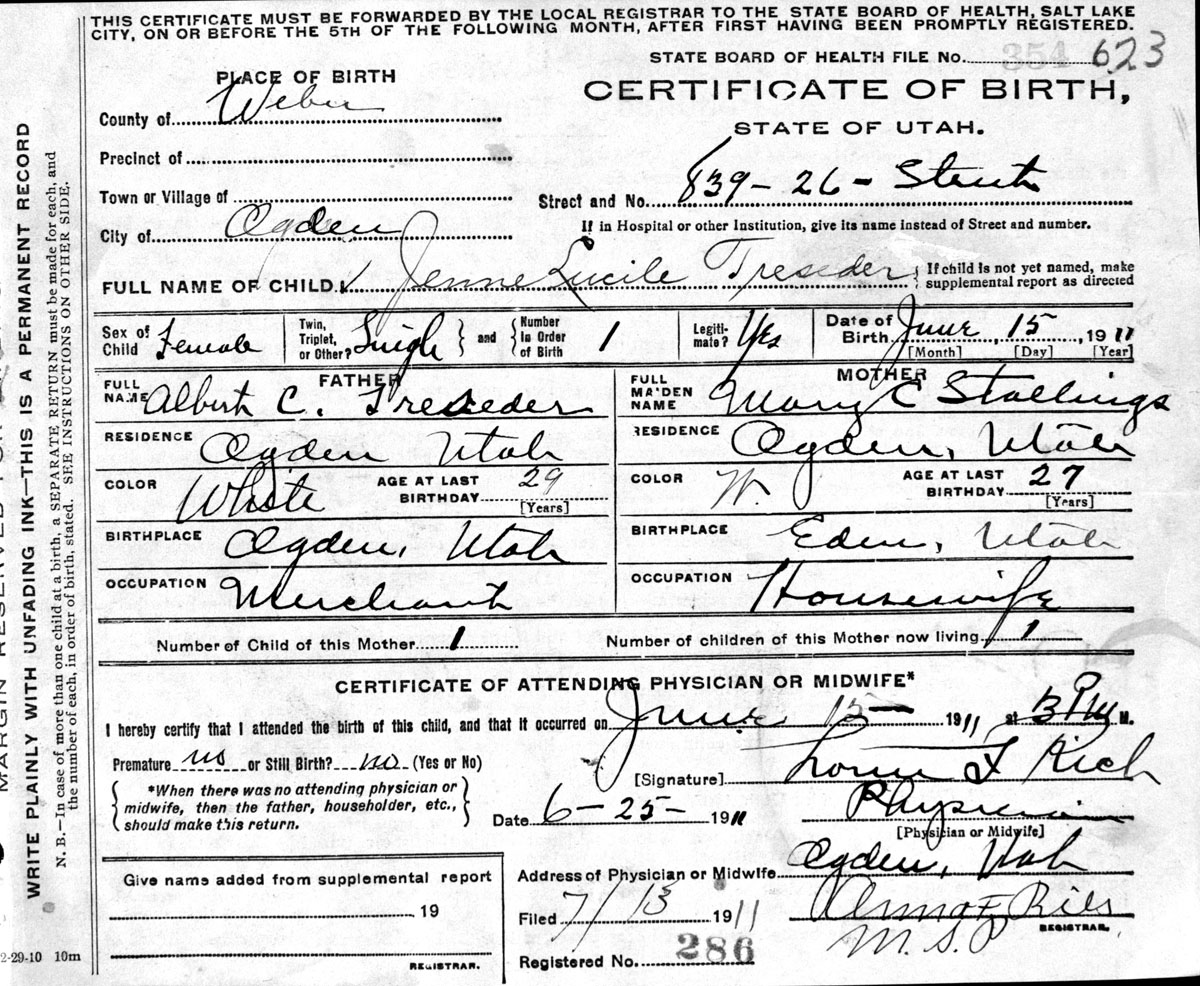 THIS CERTIFICATE MUST BE FORWARDED BY THE LOCAL REGISTRAR TO THE STATE BOARD OF HEALTH, SALT LAKE
CITY, ON OR BEFORE THE 5TH OF THE FOLLOWING MONTH, AFTER FIRST HAVING BEEN PROMPTLY REGISTERED.
STATE BOARD OF HEALTH FILE NO. 354 623
PLACE OF BIRTH
CERTIFICATE OF BIRTH,
STATE OF UTAH.
County of Weber
Precinct of
Town or Village of
Street and No. 839-26-Street
City of Ogden
If in Hospital or other Institution, give its name instead of Street and number.
FULL NAME OF CHILD Jenne Lucile Treseder { If child is not yet named, make
supplemental report as directed
Sex of Child Female
Twin, Triplet, or Other? Single } and { Number in Order of Birth 1
Legitimate? Yes
Date of Birth June 15, 1911
[Month] [Day] [Year]
FATHER
FULL NAME Albert C. Treseder
RESIDENCE Ogden Utah
COLOR White AGE AT LAST BIRTHDAY 29
[Years]
BIRTHPLACE Ogden, Utah
OCCUPATION Merchant
MOTHER
FULL MAIDEN NAME Mary C Stallings
RESIDENCE Ogden, Utah
COLOR W. AGE AT LAST BIRTHDAY 27
[Years]
BIRTHPLACE Eden, Utah
OCCUPATION Housewife
Number of Child of this Mother 1 Number of children of this Mother now living 1
CERTIFICATE OF ATTENDING PHYSICIAN OR MIDWIFE*
I hereby certify that I attended the birth of this child, and that it occurred on June 15- 1911, at 3 P M.
Premature no or Still Birth? no (Yes or No)
[Signature] Rich
*When there was no attending physician or
midwife, then the father, householder, etc.,
should make this return.
Date 6-25- 1911
Physician
[Physician or Midwife]
Address of Physician or Midwife Ogden, Utah
Give name added from supplemental report
19
REGISTRAR.
Filed 7/13 1911
REGISTRAR.
Registered No. 286
MARGIN RESERVED FOR
WRITE PLAINLY WITH UNFADING INK—THIS IS A PERMANENT RECORD
N. B.—In case of more than one child at a birth, a SEPARATE RETURN must be made for each, and
the number of each, in order of birth, stated. SEE INSTRUCTIONS ON OTHER SIDE.
2-29-10 10m